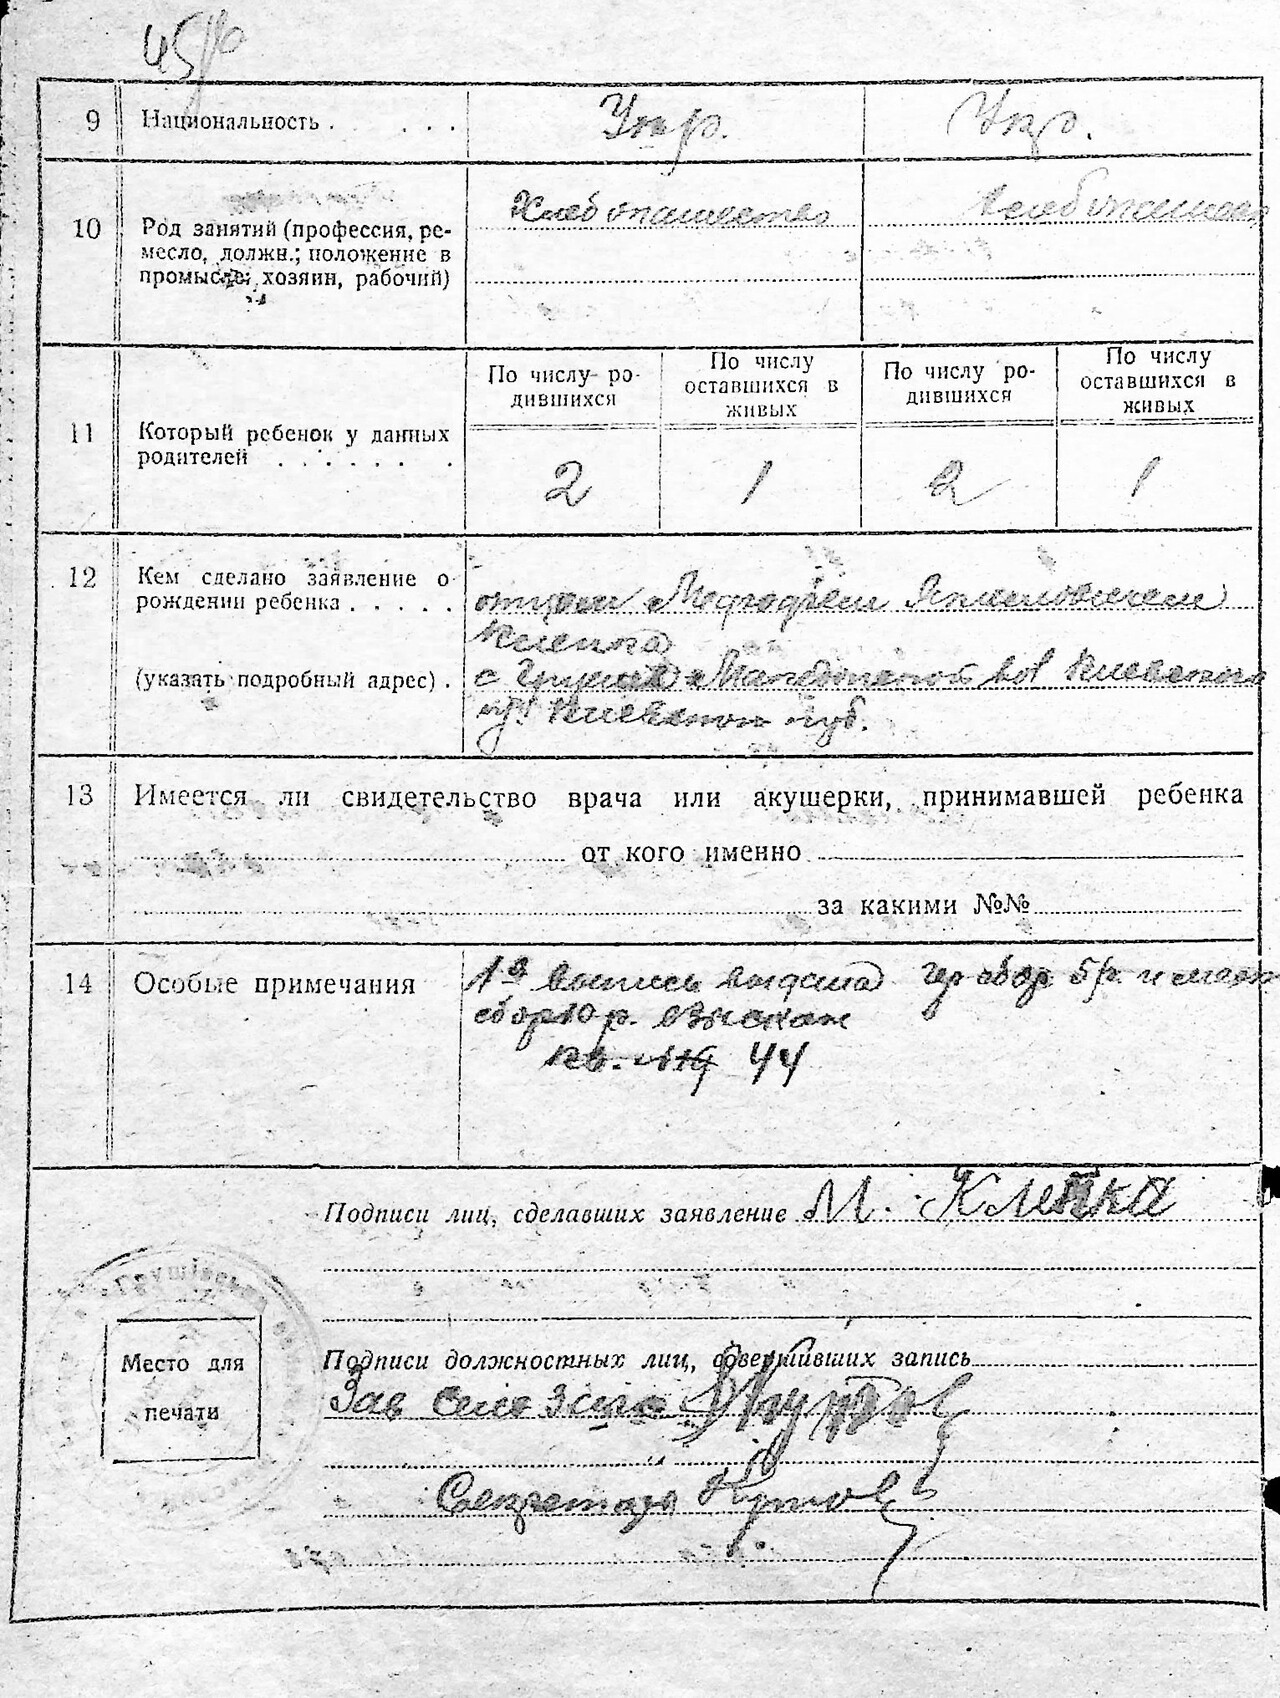 45
9 Национальность . . . . . Укр. Укр.
10 Род занятий (профессия, ре-
месло, должн.; положение в
промысле: хозяин, рабочий)
Хлебопашество
11 Который ребенок у данных
родителей . . . . . . .
По числу ро-
дившихся
По числу
оставшихся в
живых
По числу ро-
дившихся
По числу
оставшихся в
живых
2 1 2 1
12 Кем сделано заявление о
рождении ребенка . . . . .
(указать подробный адрес) .
отцом
Клепка
с Киевского
Киевской губ.
13 Имеется ли свидетельство врача или акушерки, принимавшей ребенка
от кого именно
за какими №№
14 Особые примечания
1я выпись выдана гер сбор 5 р. и
сбор 10 р. взыскан
кв. 44
Подписи лиц, сделавших заявление М. Клепка
Подписи должностных лиц, совершивших запись
Зав
Секретарь
Место для
печати